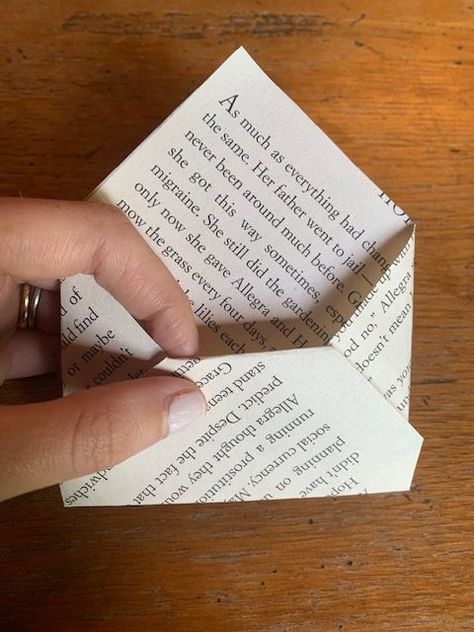 HOP
As much as everything had chang
the same. Her father went to jail
never been around much before. G
she got this way sometimes, esp
migraine. She still did the gardenin
only now she gave Allegra and H
mow the grass every four days,
likes each
d of
ld find
or maybe
couldn't
od no," Allegra
doesn't mean
as you
Grace
stand teen
predict. Despite the fact that
Allegra thought they wou
running a prostitutio
social currency. Ma
planning on
didn't have
Hop
dwiches